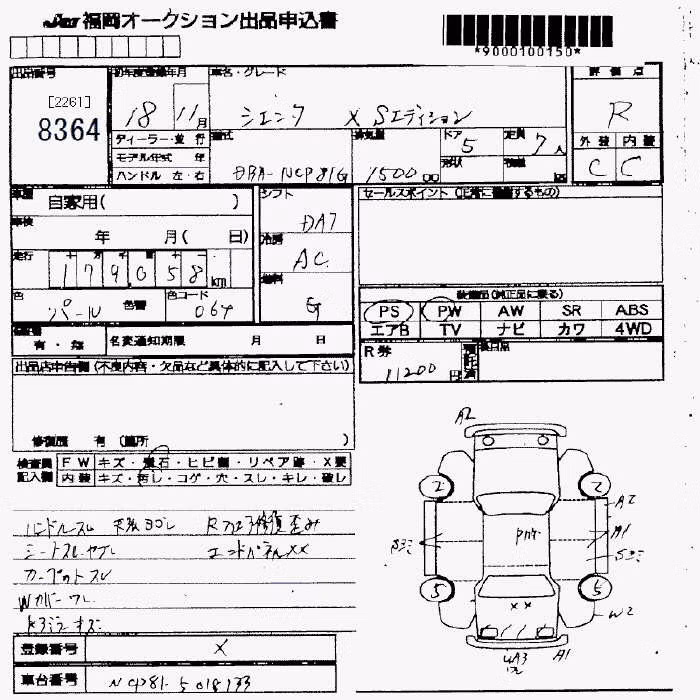 福岡オークション出品申込書
*9000100150*
出品番号 初年度登録年月 車名・グレード 評価点
[2261]
8364
18 11月 シエンタ X Sエディション R
ディーラー・並行 型式 排気量 ドア 定員 外装 内装
モデル年式 年 5 7人
ハンドル 左・右 DBA-NCP81G 1500cc 形状 積載 kg C C
車歴 自家用( ) シフト セールスポイント
車検 年 月( 日) DA7
走行 179058km 冷房 AC
色 パール 色替 色コード 064 燃料 G
装備品(純正品に限る)
PS PW AW SR ABS
エアB TV ナビ カワ 4WD
有・無 名変通知期限 月 日
R券 11200円
出品店申告欄(不良内容・欠品など具体的に記入して下さい)
修復歴 有(箇所 )
検査員 FW キズ・飛石・ヒビ割・リペア跡・X要
記入欄 内装 キズ・汚レ・コゲ・穴・スレ・キレ・破レ
ハンドルスレ 天張ヨゴレ Rフロア修復歪み
シートスレヤブレ エンドパネルXX
カーペットスレ
Wカバーワレ
ドアミラーキズ
A2
2 2
A2
A1
5 5
W2
XX
A1
登録番号 X
車台番号 NCP81-5018133